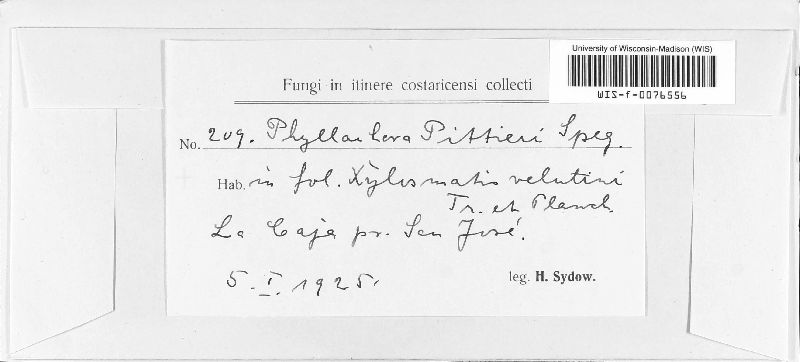 University of Wisconsin-Madison (WIS)
WIS-f-0076556
Fungi in itinere costaricensi collecti
No. 209. Phyllachora Pittieri Speg.
Hab. in fol. Xylosmatis velutini
Tr. et Planch.
La Caja pr. San José.
5. I. 1925.
leg. H. Sydow.